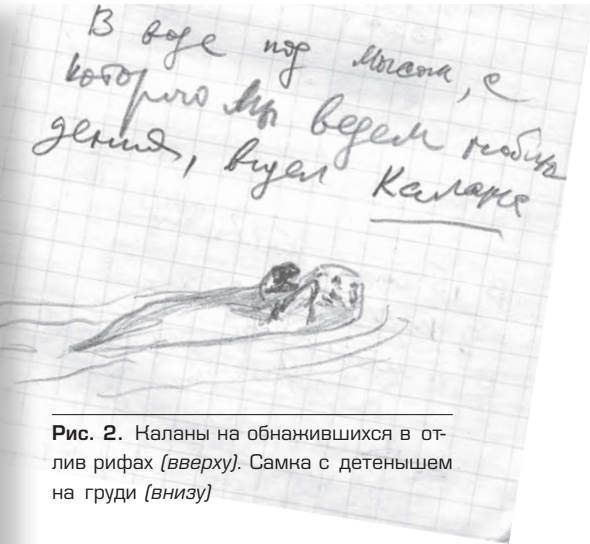 В воде под мысом, с
которого мы ведем наблю
дения, видел Калана
Рис. 2. Каланы на обнажившихся в от-
лив рифах (вверху). Самка с детенышем
на груди (внизу)